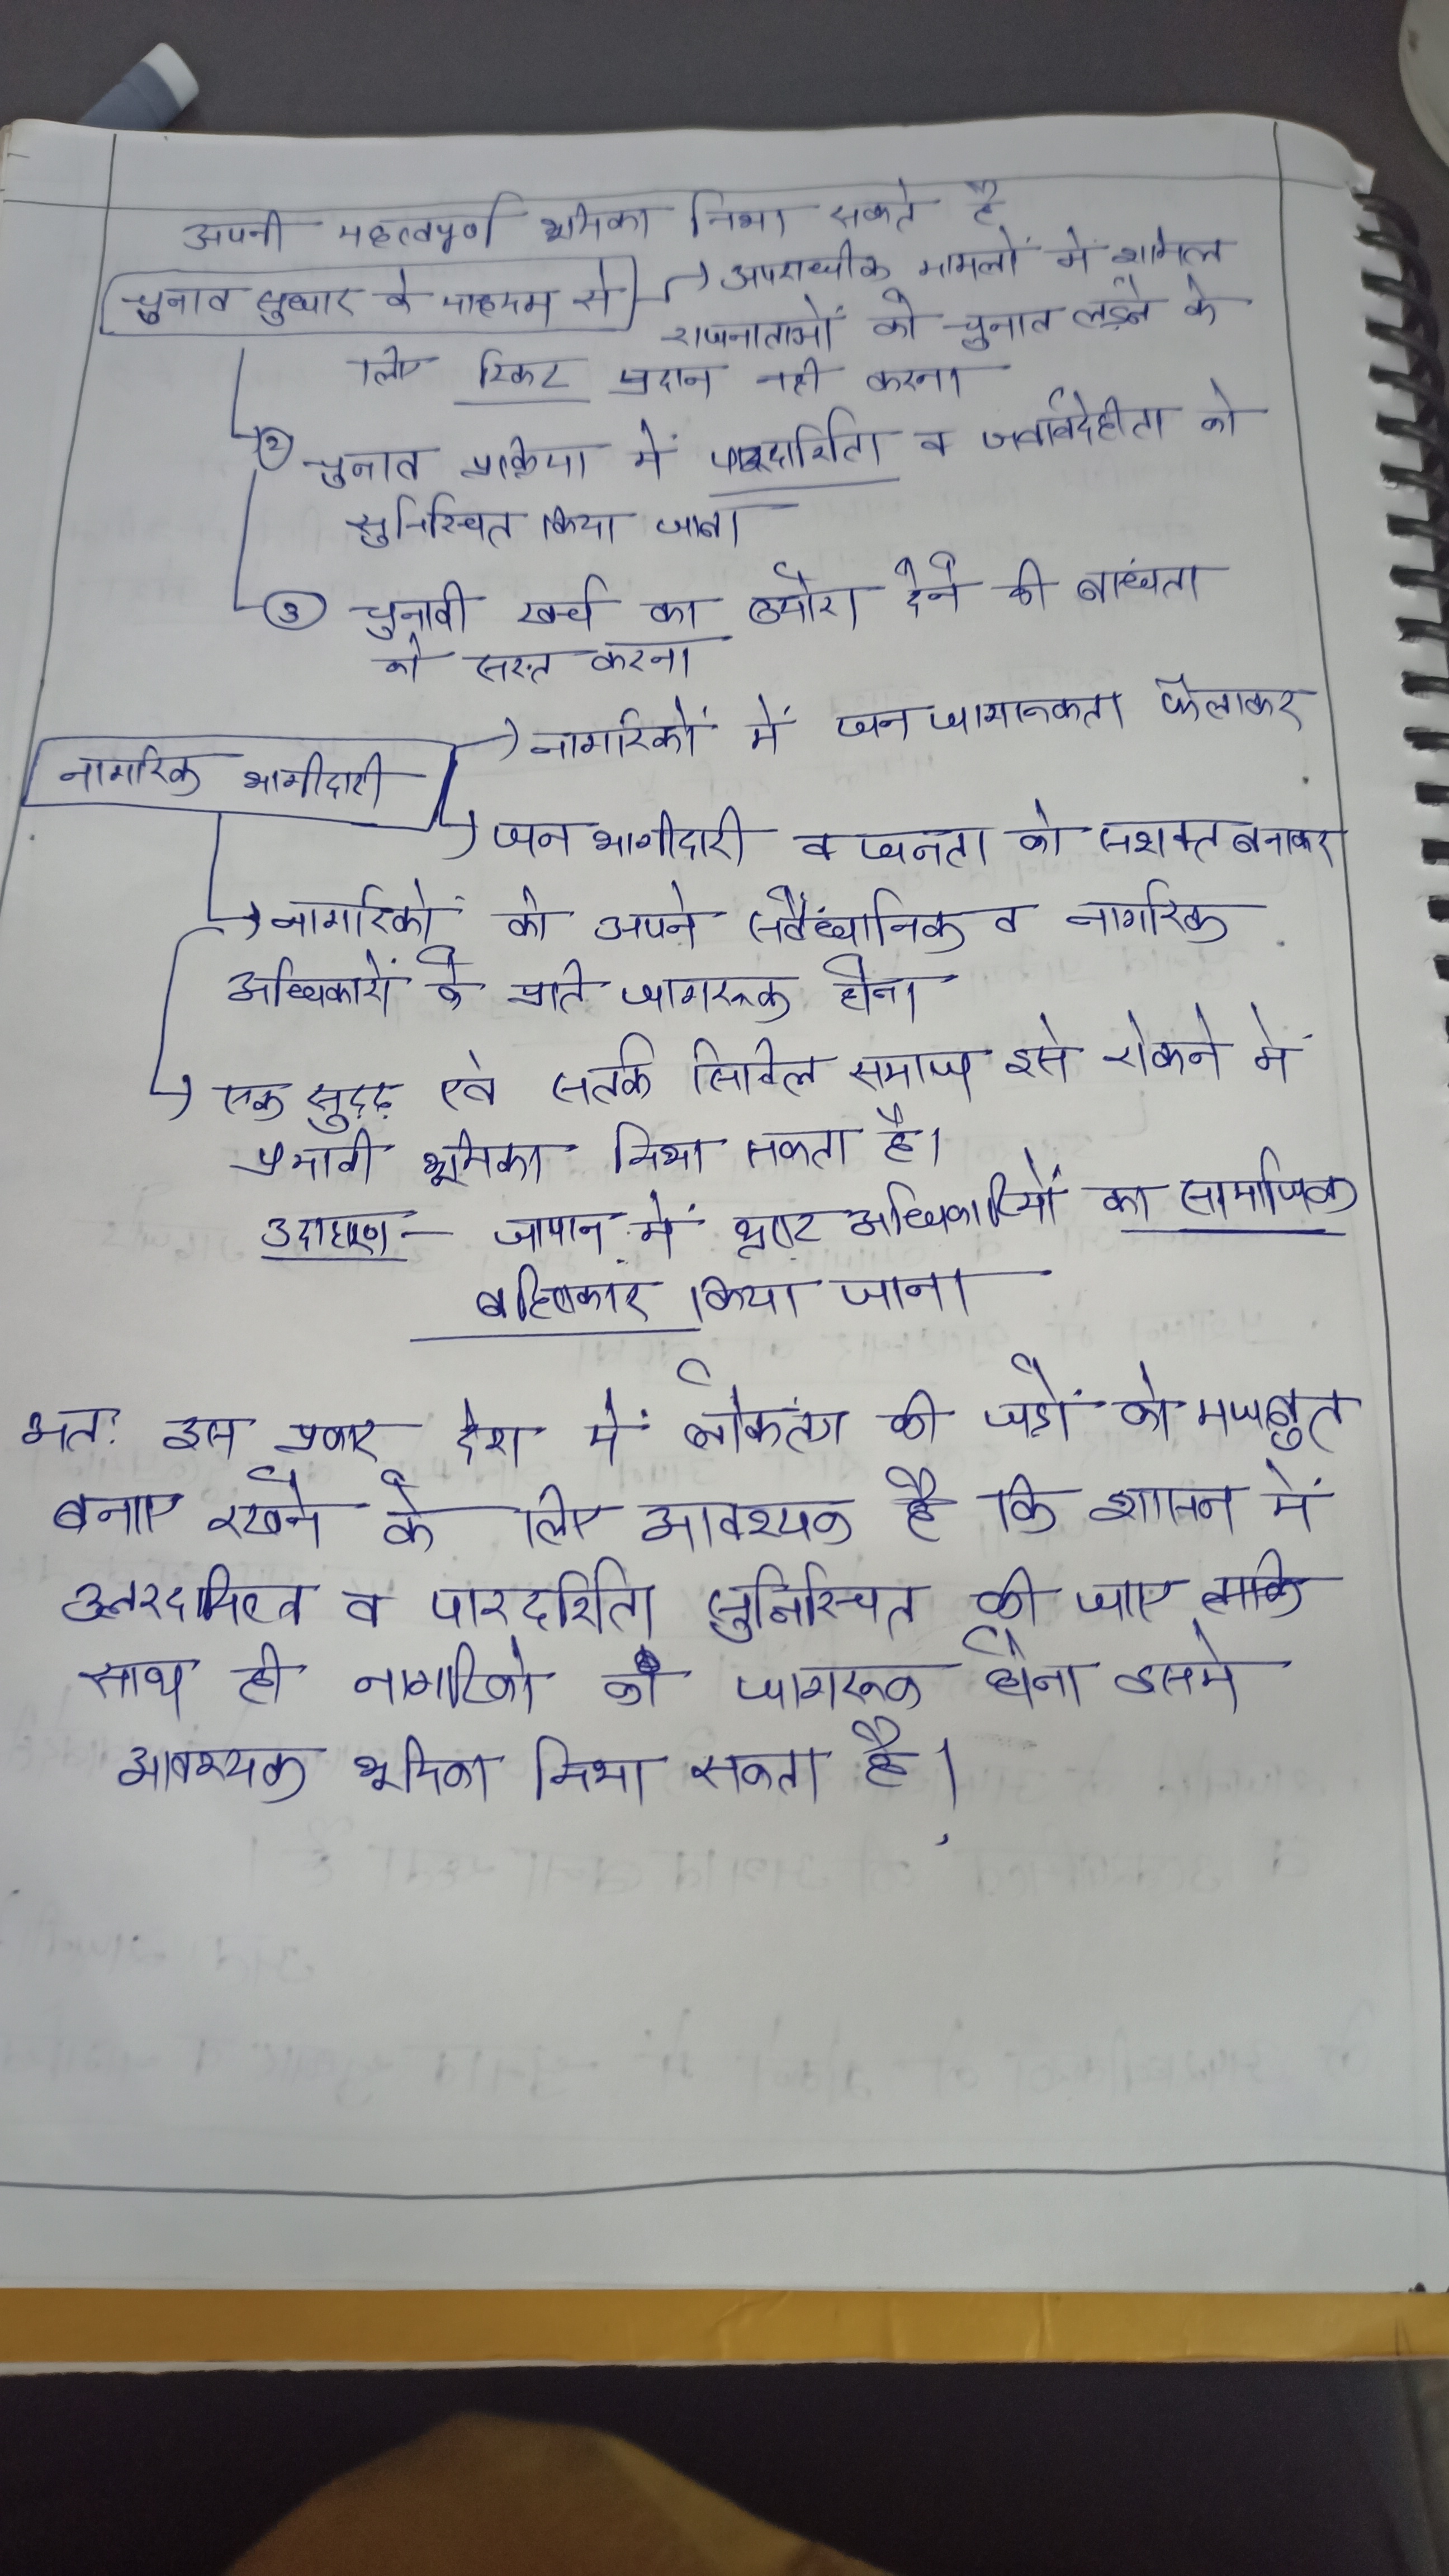 अपनी महत्वपूर्ण भूमिका निभा सकते है
चुनाव सुधार के माध्यम से → अपराधीक मामलों में शामिल
राजनाताओं को चुनाव लड़ने के
लिए टिकट प्रदान नही करना
② चुनाव प्रक्रिया में पारदर्शिता व जवाबदेहीता को
सुनिश्चित किया जाना
③ चुनावी खर्च का ब्योरा देने की बाध्यता
को सख्त करना
→ नागरिकों में जन जागरूकता फैलाकर
नागरिक भागीदारी
→ जन भागीदारी व जनता को सशक्त बनाकर
→ नागरिकों को अपने सवैंधानिक व नागरिक
अधिकारों के प्रति जागरूक होना
→ एक सुदृढ़ एवं सतर्क सिविल समाज इसे रोकने में
प्रभावी भूमिका निभा सकता है।
उदाहरण – जापान में भ्रष्ट अधिकारियों का सामाजिक
बहिष्कार किया जाना
अत: इस प्रकार देश में लोकतंत्र की जड़ों को मजबुत
बनाए रखने के लिए आवश्यक है कि शासन में
उत्तरदायित्व व पारदर्शिता सुनिश्चित की जाए
साथ ही नागरिको का जागरूक होना इसमे
आवश्यक भूमिका निभा सकता है।